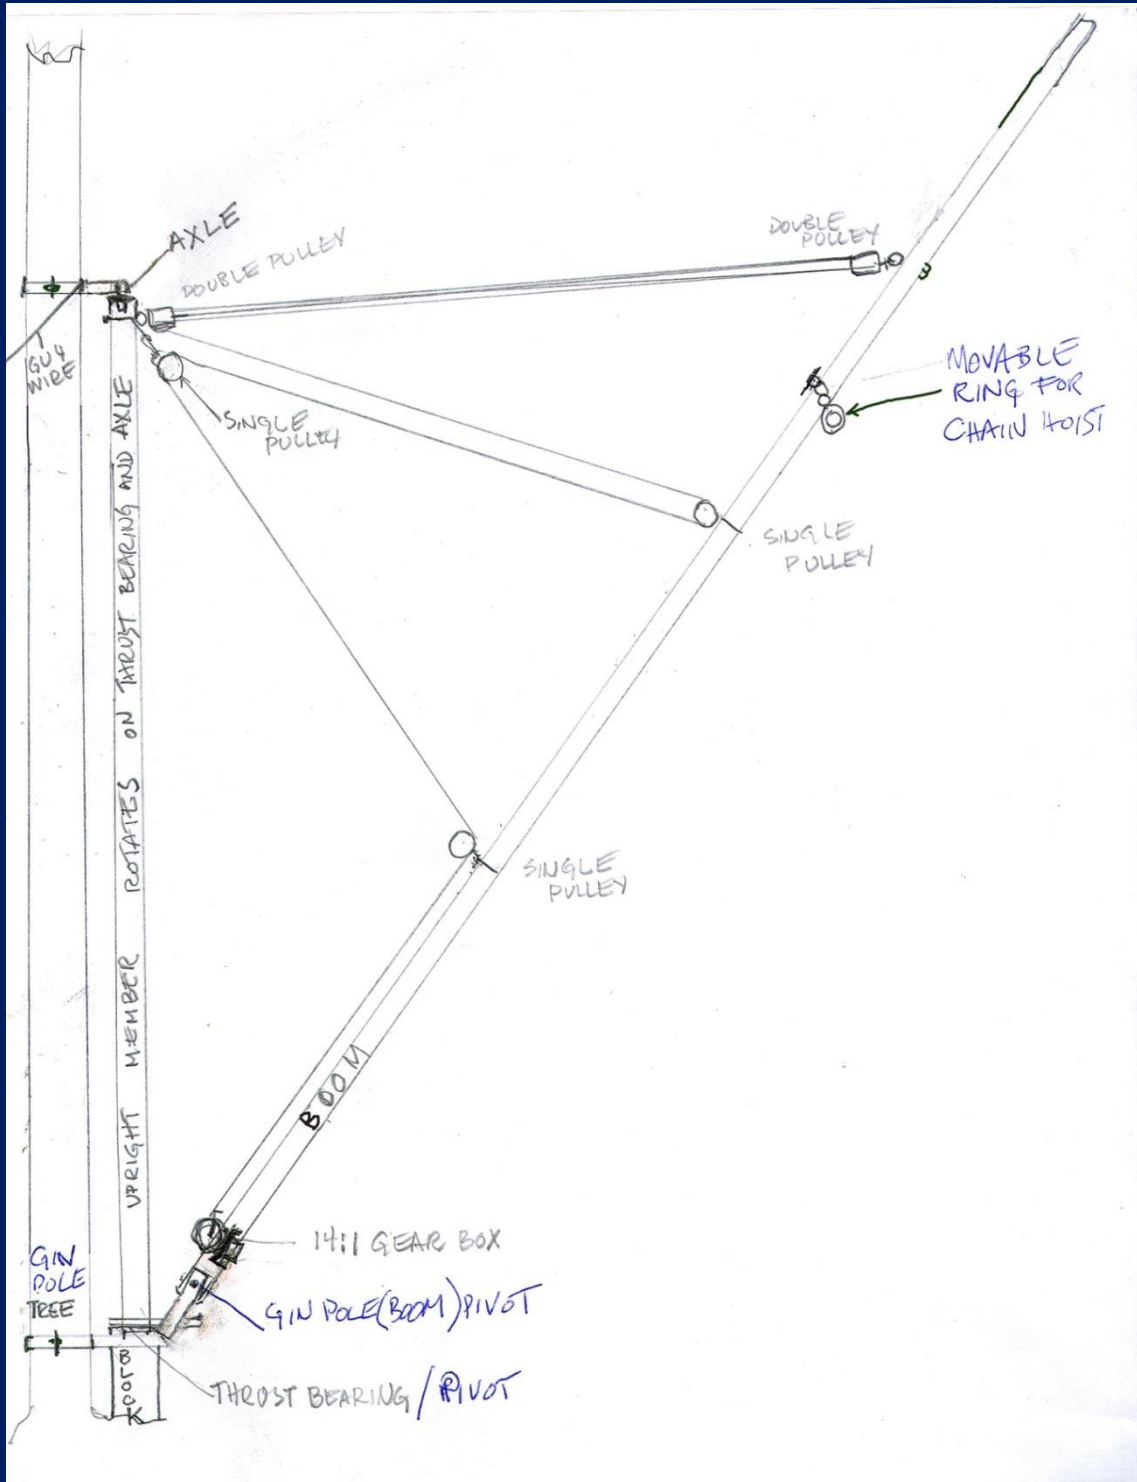 AXLE
DOUBLE PULLEY
DOUBLE
PULLEY
GUY
WIRE
SINGLE
PULLEY
MOVABLE
RING FOR
CHAIN HOIST
SINGLE
PULLEY
UPRIGHT MEMBER ROTATES ON THRUST BEARING AND AXLE
SINGLE
PULLEY
BOOM
14:1 GEAR BOX
GIN
POLE
TREE
GIN POLE(BOOM)PIVOT
BLOCK
THRUST BEARING/PIVOT